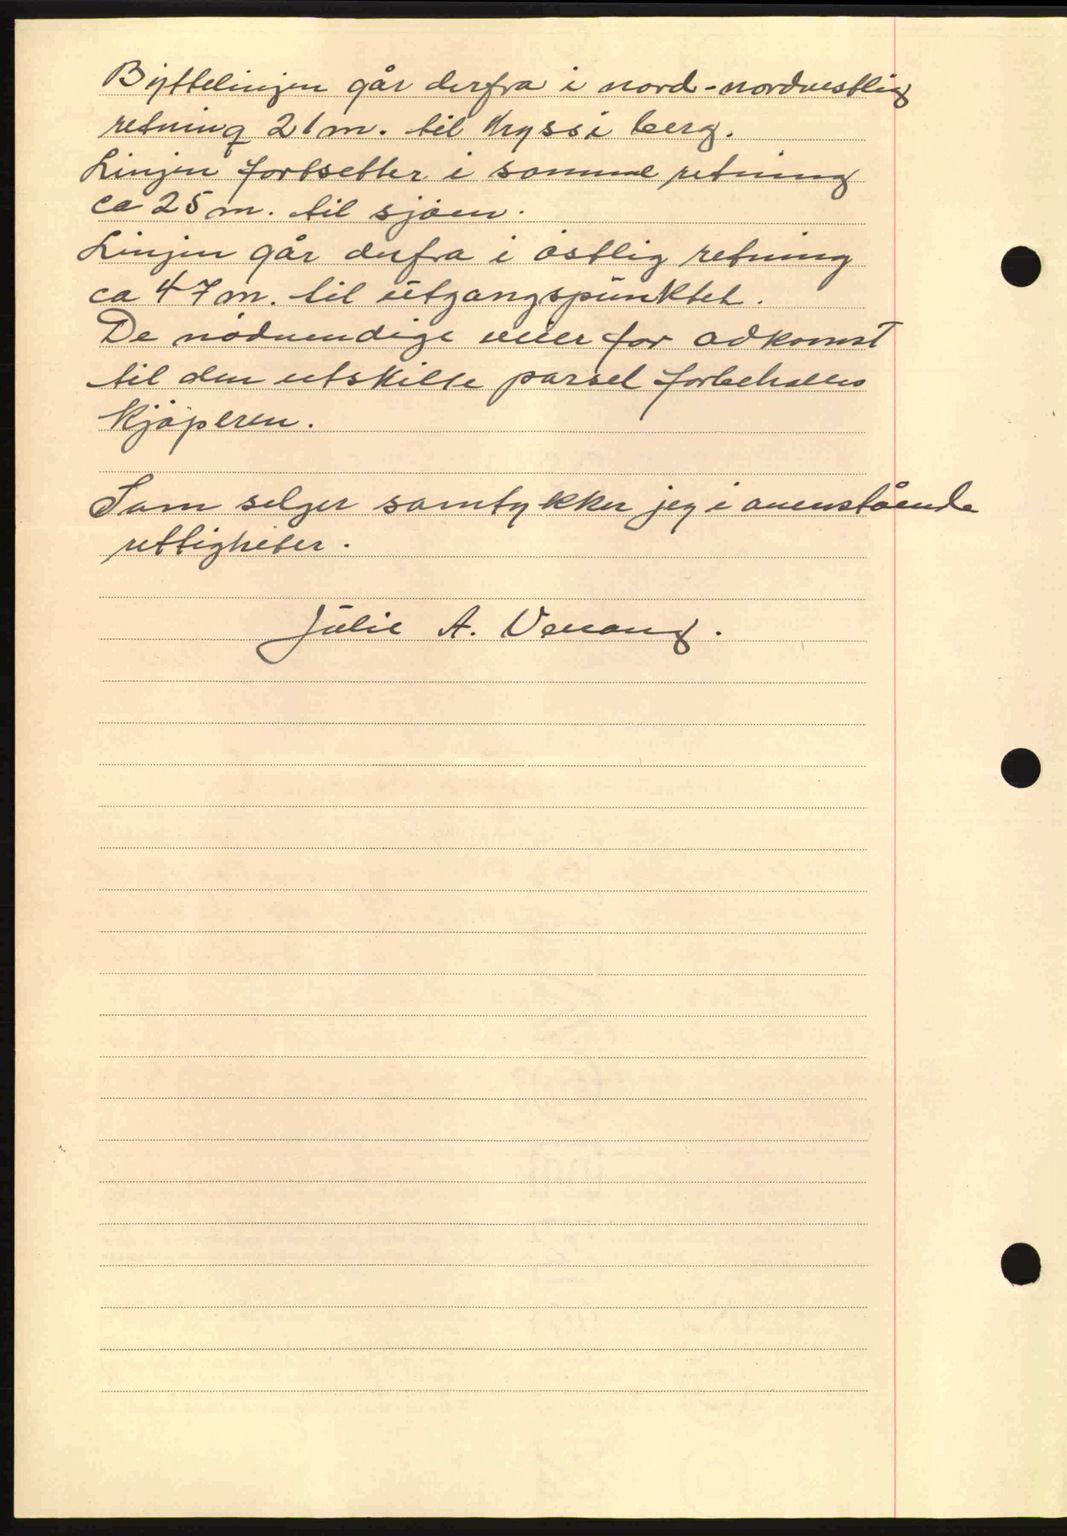 Byttelinjen går derfra i nord-nordvestlig
retning 21m. til kryss i berg.
Linjen fortsetter i samme retning
ca 25 m. til sjøen.
Linjen går derfra i østlig retning
ca 47 m. til utgangspunktet.
De nødvendige veier for adkomst
til den utskilte parsel forbeholdes
kjøperen.
Som selger samtykker jeg i ovenstående
rettigheter.
Julie A.